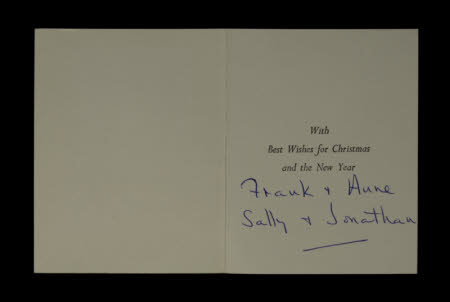 With
Best Wishes for Christmas
and the New Year
Frank + Anne
Sally + Jonathan